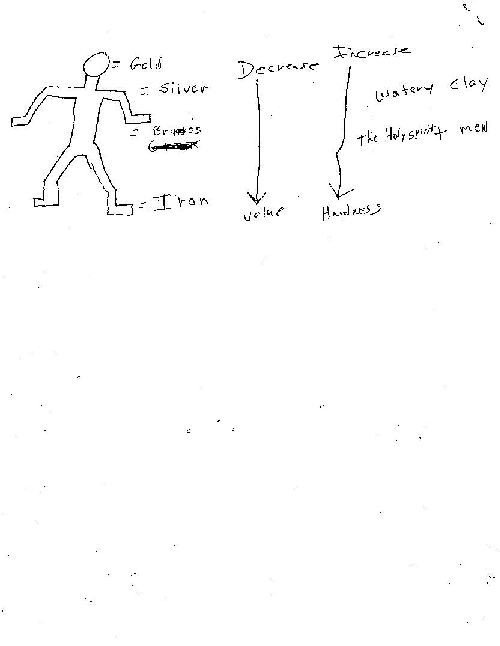 = Gold
= Silver
=
= Iron
Decrease
value
Increase
Hardness
watery clay
the Holy spirit men